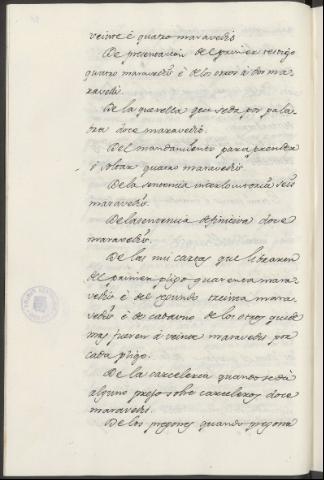 veinte è quatro maravedis
De presentacion del primer testigo
quatro maravedis è de los otros à dos ma-
ravedis.
De la querella que se dà por pala-
bra doce maravedis.
Del mandamiento para prender
ò soltar quatro maravedis.
De la sentencia interlocutoria seis
maravedis.
De la sentencia definitiva doce
maravedis.
De las mis cartas que libraren
del primer pligo quarenta mara-
vedis è del segundo treinta mara-
vedis è de cada uno de los otros que de
mas fueren à veinte maravedis por
cada pligo.
De la carceleria quando se dà
alguno preso sobre carceleros doce
maravedis.
De los pregones quando pregona